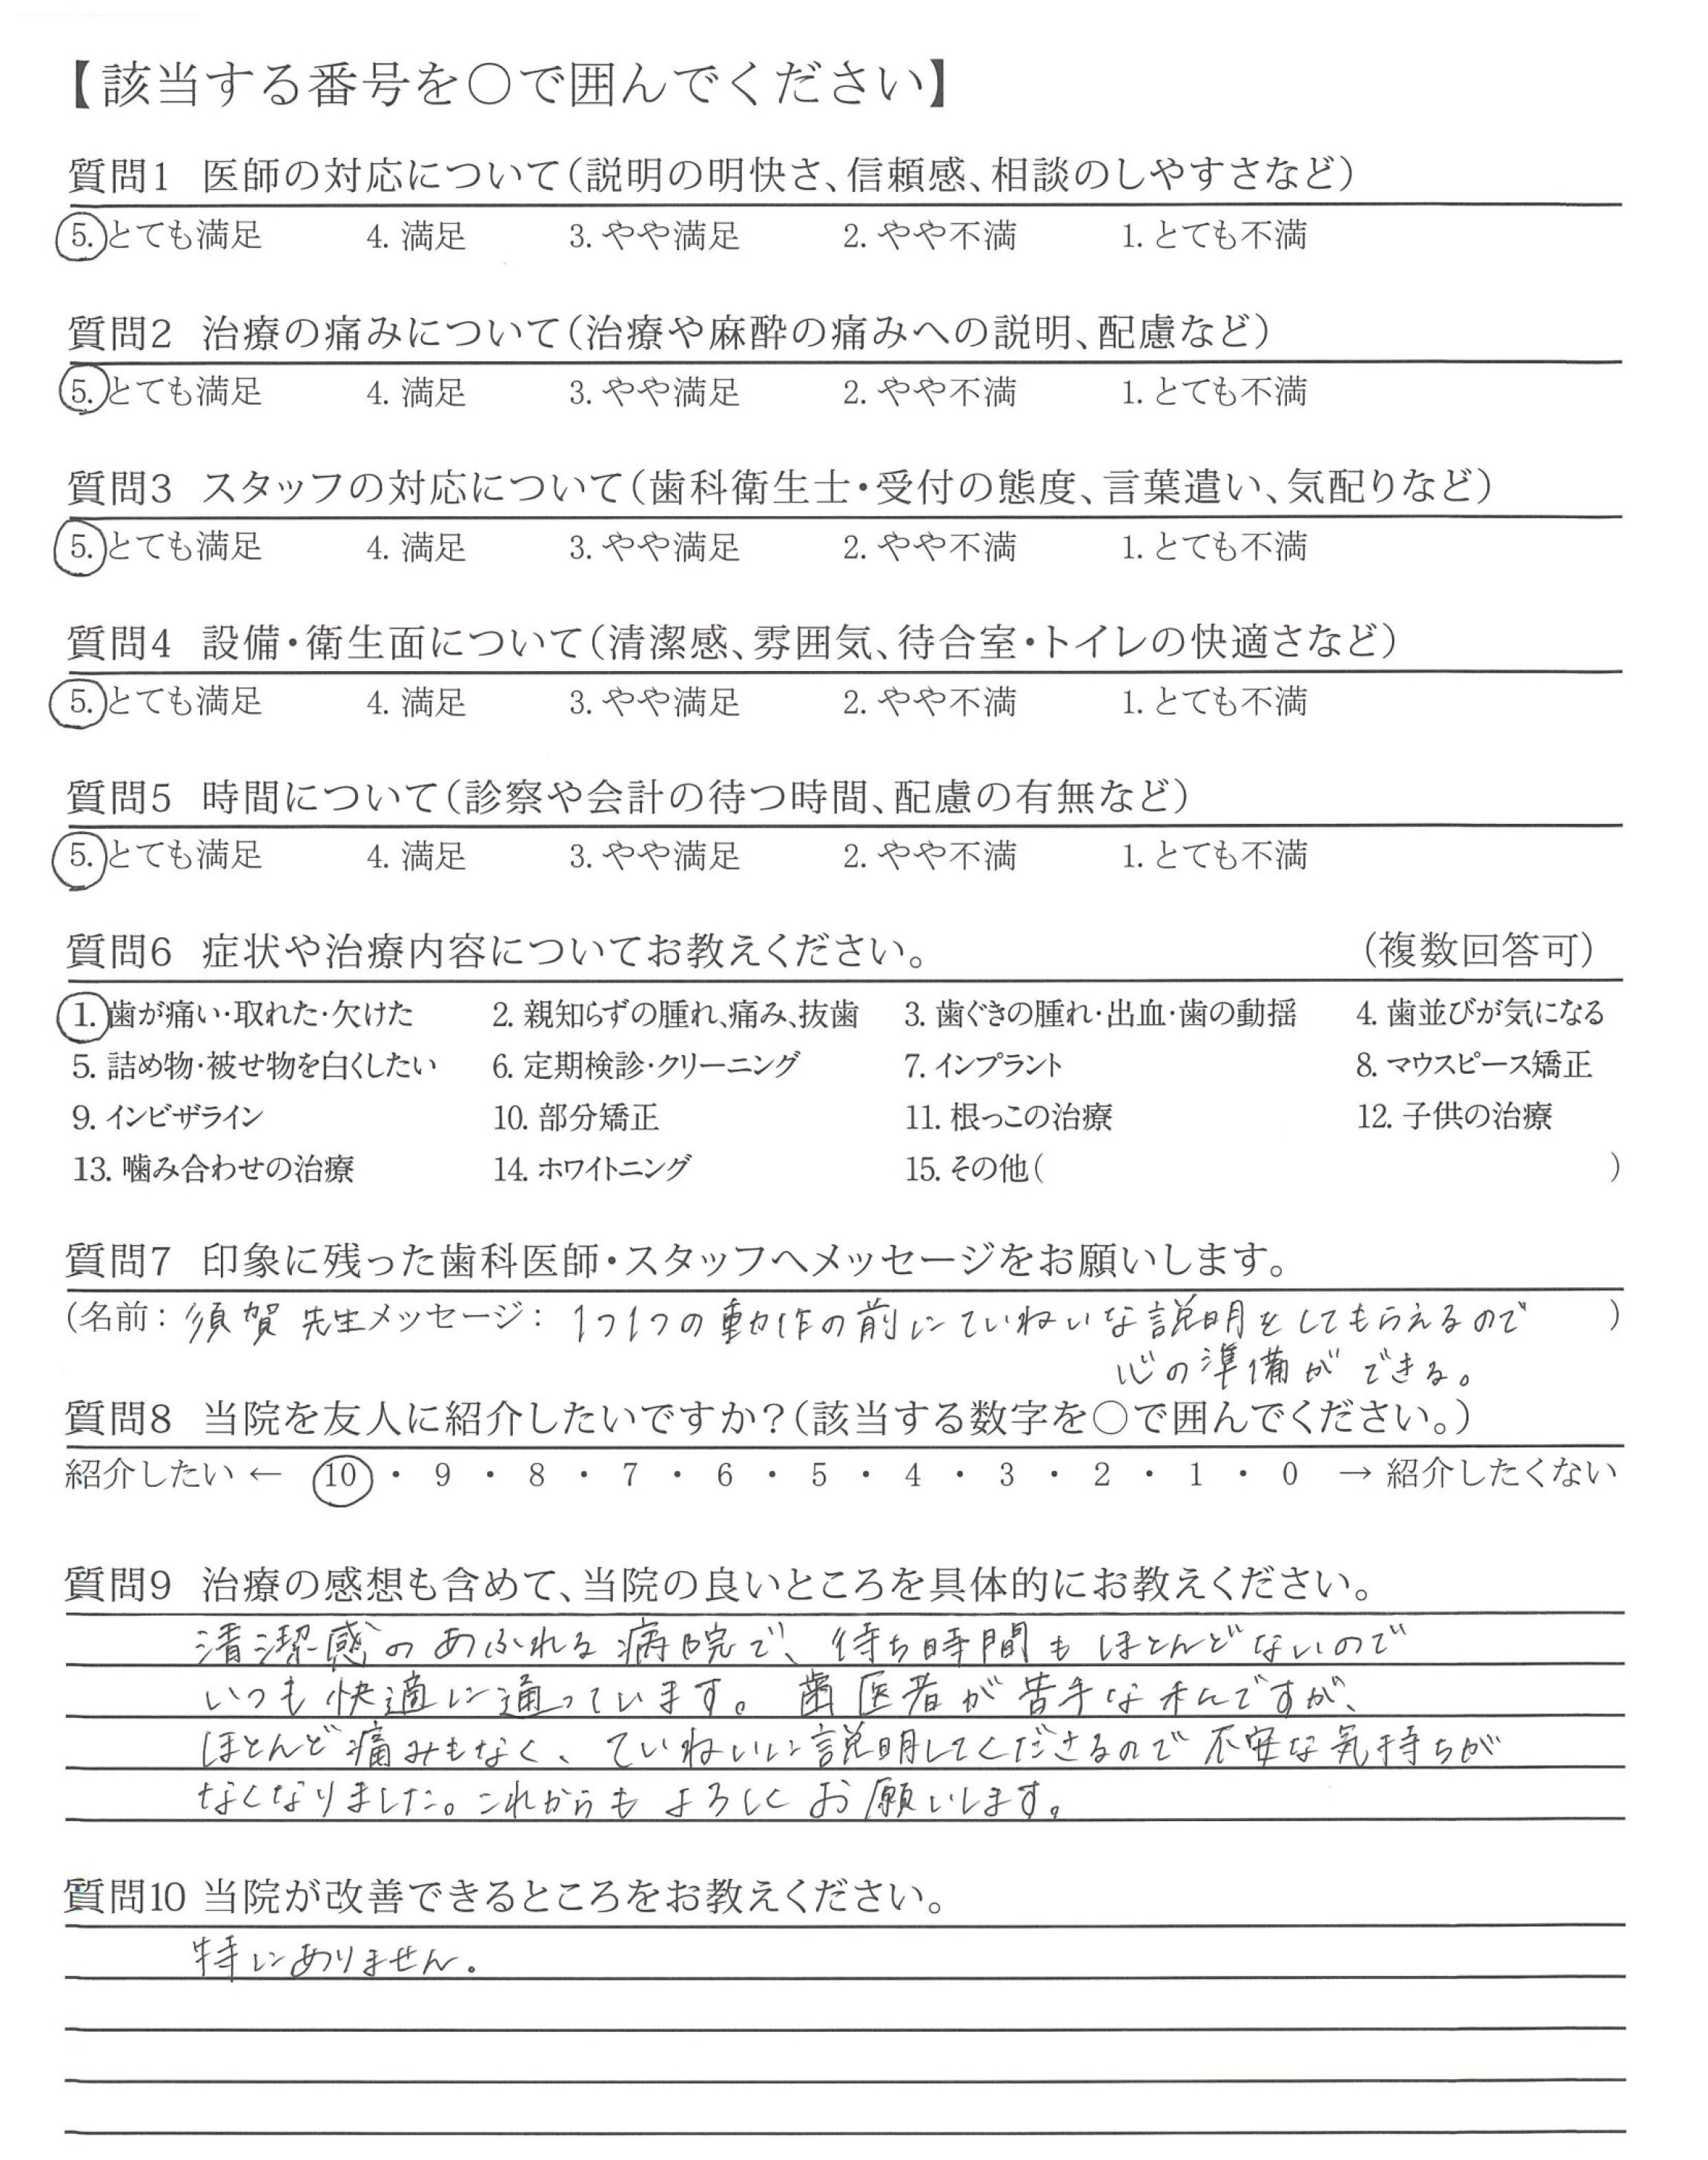 【該当する番号を〇で囲んでください】
質問1 医師の対応について(説明の明快さ、信頼感、相談のしやすさなど)
5. とても満足 4. 満足 3. やや満足 2. やや不満 1. とても不満
質問2 治療の痛みについて(治療や麻酔の痛みへの説明、配慮など)
5. とても満足 4. 満足 3. やや満足 2. やや不満 1. とても不満
質問3 スタッフの対応について(歯科衛生士・受付の態度、言葉遣い、気配りなど)
5. とても満足 4. 満足 3. やや満足 2. やや不満 1. とても不満
質問4 設備・衛生面について(清潔感、雰囲気、待合室・トイレの快適さなど)
5. とても満足 4. 満足 3. やや満足 2. やや不満 1. とても不満
質問5 時間について(診察や会計の待つ時間、配慮の有無など)
5. とても満足 4. 満足 3. やや満足 2. やや不満 1. とても不満
質問6 症状や治療内容についてお教えください。 (複数回答可)
1. 歯が痛い・取れた・欠けた 2. 親知らずの腫れ、痛み、抜歯 3. 歯ぐきの腫れ・出血・歯の動揺 4. 歯並びが気になる
5. 詰め物・被せ物を白くしたい 6. 定期検診・クリーニング 7. インプラント 8. マウスピース矯正
9. インビザライン 10. 部分矯正 11. 根っこの治療 12. 子供の治療
13. 噛み合わせの治療 14. ホワイトニング 15. その他( )
質問7 印象に残った歯科医師・スタッフへメッセージをお願いします。
(名前：須賀 先生メッセージ：1つ1つの動作の前にていねいな説明をしてもらえるので )
心の準備ができる。
質問8 当院を友人に紹介したいですか？(該当する数字を〇で囲んでください。)
紹介したい ← 10 ・ 9 ・ 8 ・ 7 ・ 6 ・ 5 ・ 4 ・ 3 ・ 2 ・ 1 ・ 0 → 紹介したくない
質問9 治療の感想も含めて、当院の良いところを具体的にお教えください。
清潔感のあふれる病院で、待ち時間もほとんどないので
いつも快適に通っています。歯医者が苦手な私ですが、
ほとんど痛みもなく、ていねいに説明してくださるので不安な気持ちが
なくなりました。これからもよろしくお願いします。
質問10 当院が改善できるところをお教えください。
特にありません。